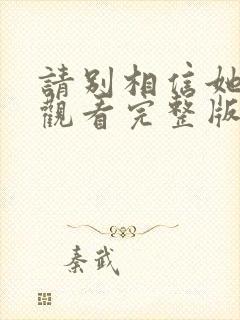 請別相信她
觀看完整版
秦武